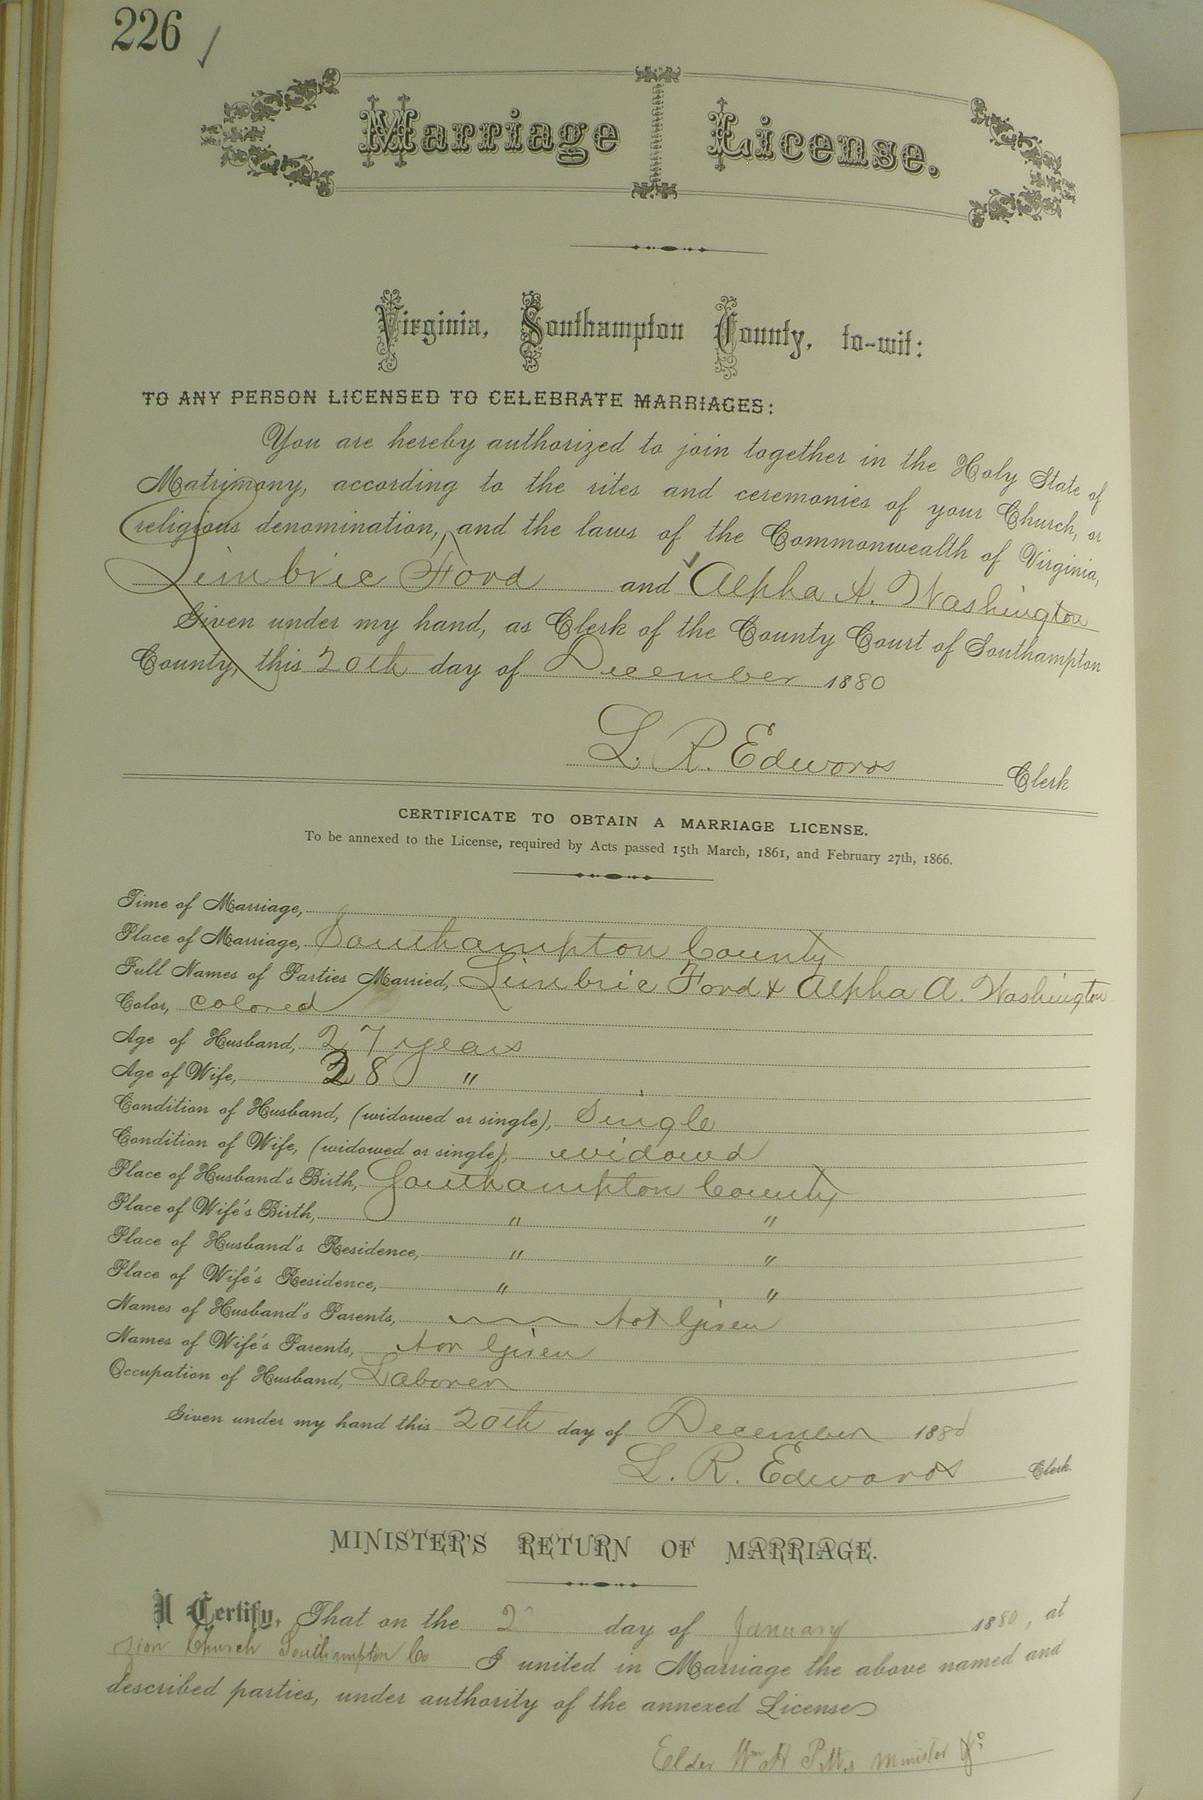 226
Marriage License.
Virginia, Southampton County, to-wit:
TO ANY PERSON LICENSED TO CELEBRATE MARRIAGES:
You are hereby authorized to join together in the Holy State of
Matrimony, according to the rites and ceremonies of your Church, or
religious denomination, and the laws of the Commonwealth of Virginia,
Limbric Ford and Alpha A. Washington
Given under my hand, as Clerk of the County Court of Southampton
County, this 20th day of December 1880
L. R. Edwards Clerk
CERTIFICATE TO OBTAIN A MARRIAGE LICENSE.
To be annexed to the License, required by Acts passed 15th March, 1861, and February 27th, 1866.
Time of Marriage,
Place of Marriage, Southampton County
Full Names of Parties Married, Limbric Ford & Alpha A. Washington
Color, Colored
Age of Husband, 27 years
Age of Wife, 28 "
Condition of Husband, (widowed or single), Single
Condition of Wife, (widowed or single), widowed
Place of Husband's Birth, Southampton County
Place of Wife's Birth, " "
Place of Husband's Residence, " "
Place of Wife's Residence, " "
Names of Husband's Parents, Not Given
Names of Wife's Parents, Not Given
Occupation of Husband, Laborer
Given under my hand this 20th day of December 1880
L. R. Edwards Clerk
MINISTER'S RETURN OF MARRIAGE.
I Certify, That on the 2 day of January 1880, at
Zion Church Southampton Co I united in Marriage the above named and
described parties, under authority of the annexed License
Elder Wm H Pitts Minister